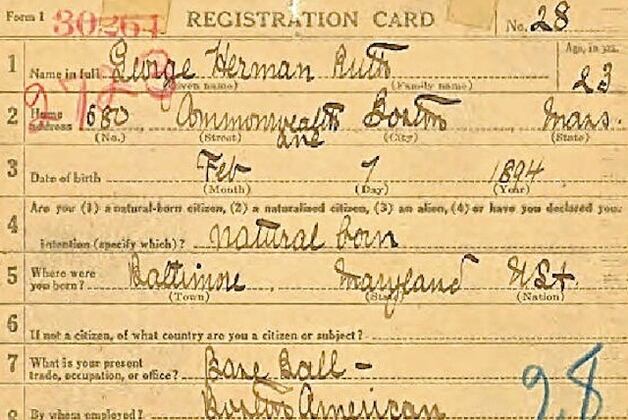 Form 1 30261 REGISTRATION CARD No. 28
1 Name in full George Herman Ruth Age, in yrs. 23
(Given name) (Family name)
2723
2 Home address 680 Commonwealth Ave Boston Mass.
(No.) (Street) (City) (State)
3 Date of birth Feb 7 1894
(Month) (Day) (Year)
4 Are you (1) a natural-born citizen, (2) a naturalized citizen, (3) an alien, (4) or have you declared your
intention (specify which)? natural born
5 Where were you born? Baltimore Maryland USA
(Town) (State) (Nation)
6 If not a citizen, of what country are you a citizen or subject?
7 What is your present trade, occupation, or office? Base Ball - 28
8 By whom employed? Boston American